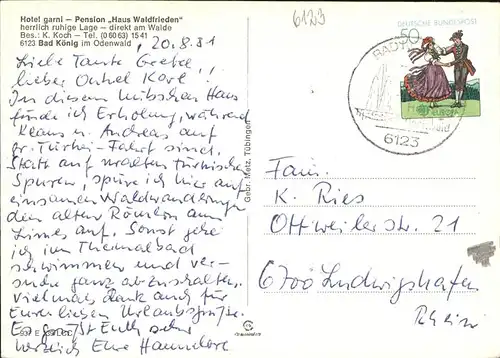 Hotel garni – Pension „Haus Waldfrieden"
herrlich ruhige Lage – direkt am Walde
Bes.: K. Koch – Tel. (0 60 63) 15 41
6123 Bad König im Odenwald
20.8.81
Liebe Tante Grete,
lieber Onkel Karl!
In diesem hübschen Haus
finde ich Erholung, während
Klaus u. Andreas auf
gr. Türkei-Fahrt sind.
Statt auf uralten türkischen
Spuren, spüre ich hier auf
einsamen Waldwanderungen
den alten Römern am
Limes auf. Sonst gehe
ich im Thermalbad
schwimmen und ver-
suche ganz abzuschalten.
Vielmals Dank auch für
Euren lieben Urlaubsgrüße.
Es grüßt Euch sehr
herzlich Eure Hannelore
Gebr. Metz, Tübingen
6123
DEUTSCHE BUNDESPOST
50
EUROPA
BAD
6123
Fam.
K. Ries
Ottweiler str. 21
6700 Ludwigshafen
Rhein